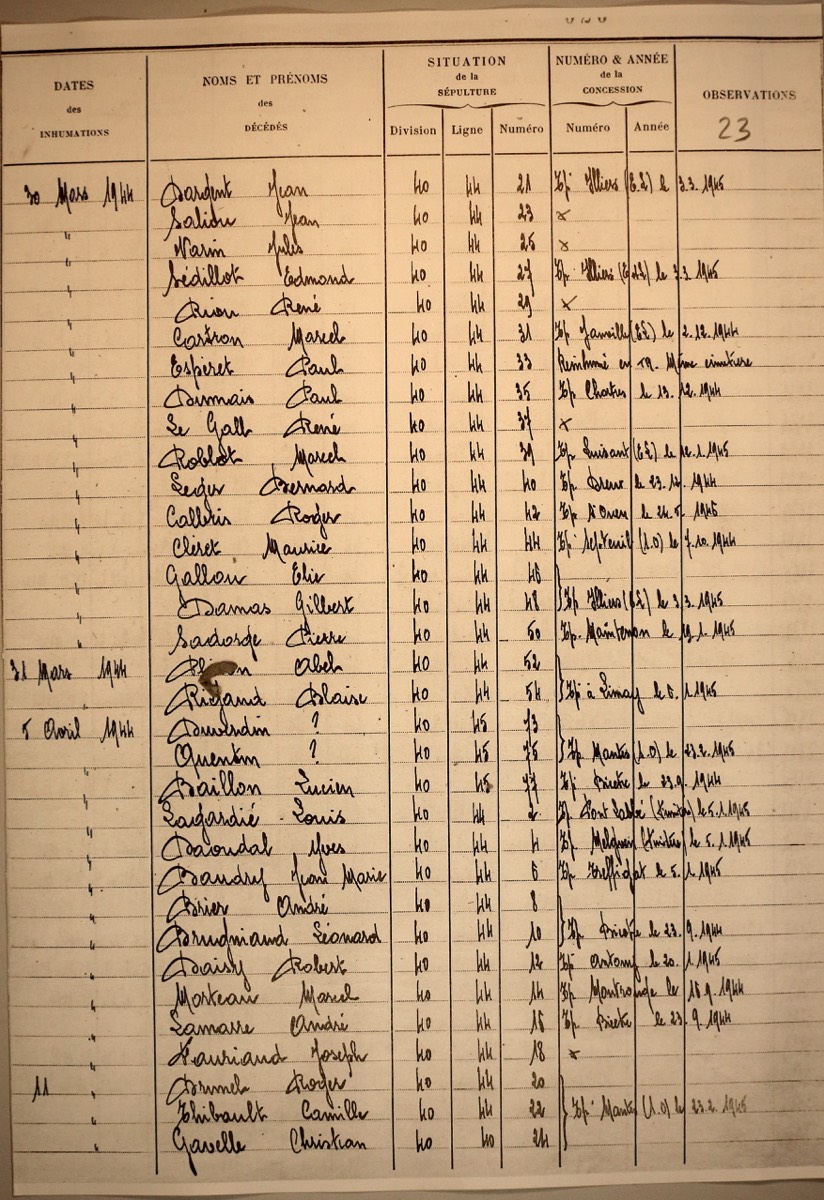 DATES des INHUMATIONS
NOMS ET PRÉNOMS des DÉCÉDÉS
SITUATION de la SÉPULTURE
NUMÉRO & ANNÉE de la CONCESSION
OBSERVATIONS
23
Division Ligne Numéro Numéro Année
30 Mars 1944 Dargent Jean 40 44 21 Tp Illiers (E.L) le 3.3.1945
" Saliou Jean 40 44 23 x
" Varin Jules 40 44 25 x
" Sédillot Edmond 40 44 27 Tp Illiers (E.L) le 3.3.1945
" Riou René 40 44 29 x
" Marcel 40 44 31 Tp Janville (E.L) le 2.12.1944
" Esperet Paul 40 44 33 Réinhumé en Même cimetière
" Dumais Paul 40 44 35 Tp Chatres le 13.12.1944
" Le Gall René 40 44 37 x
" Roblot Marcel 40 44 39 Tp Luisant (E.L) le 1.1945
" Leger Bernard 40 44 40 Tp Dreux le 23.12.1944
" Roger 40 44 42 Tp St Ouen le 24.5.1945
" Cléret Maurice 40 44 44 Tp Septeuil (S.O) le 7.10.1944
" Gallou Elie 40 44 46
" Damas Gilbert 40 44 48 } Tp Illiers (E.L) le 3.3.1945
" Sadorge Pierre 40 44 50 Tp Maintenon le 19.1.1945
31 Mars 1944 Abel 40 44 52
" Rigaud Blaise 40 44 54 } Tp à Limay le 5.1.1945
5 Avril 1944 ? 40 45 73
Quentin ? 40 45 75 } Tp Mantes (S.O) le 23.2.1945
" Baillon Lucien 40 45 77 Tp Bicetre le 23.9.1944
" Lagardié Louis 40 44 2 Tp Pont Labbé (Finistère) le 5.1.1945
" Daoudal Yves 40 44 4 Tp (Finistère) le 5.1.1945
" Baudry Jean Marie 40 44 6 Tp Treffiagat le 5.1.1945
" Brier André 40 44 8
" Brugniaud Léonard 40 44 10 } Tp Bicetre le 23.9.1944
" Daisy Robert 40 44 12 Tp Antony le 20.1.1945
" Morteau Marcel 40 44 14 Tp Montrouge le 18.9.1944
" Lamarre André 40 44 16 Tp Bicetre le 23.9.1944
" Joseph 40 44 18 x
11 " Brunel Roger 40 44 20
" Thibault Camille 40 44 22 } Tp Mantes (S.O) le 23.2.1945
" Gavelle Christian 40 40 24